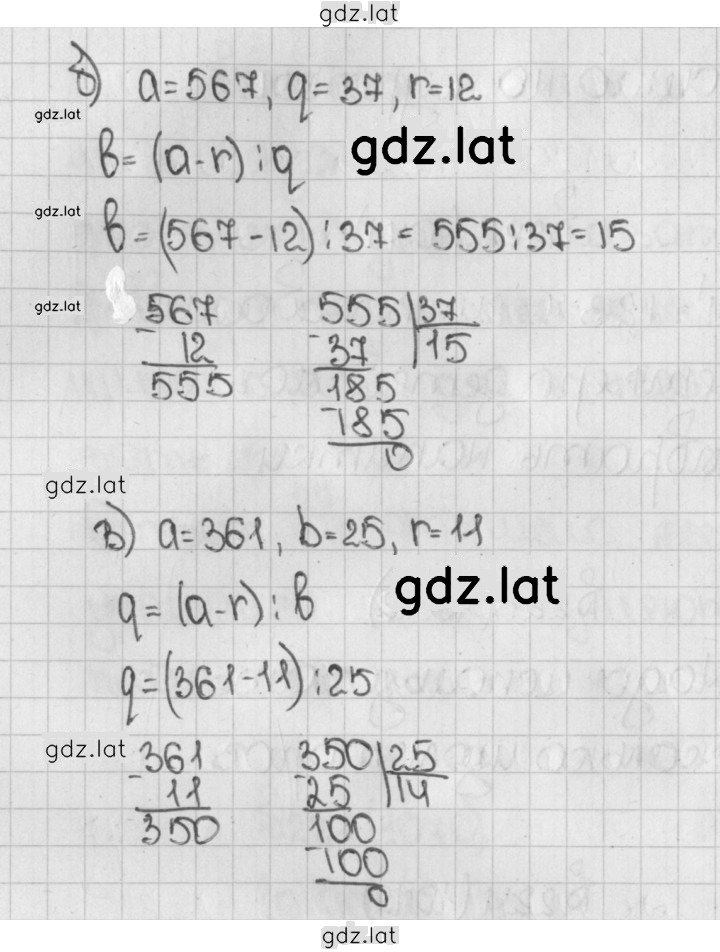 gdz.lat
б) a=567, q=37, r=12
gdz.lat
b=(a-r):q
gdz.lat
gdz.lat
b=(567-12):37= 555:37=15
gdz.lat
567 555 37
- 12 - 37 15
555 185
- 185
0
gdz.lat
в) a=361, b=25, r=11
gdz.lat
q=(a-r):b
q=(361-11):25
gdz.lat
- 361 - 350 25
11 25 14
350 100
- 100
0
gdz.lat